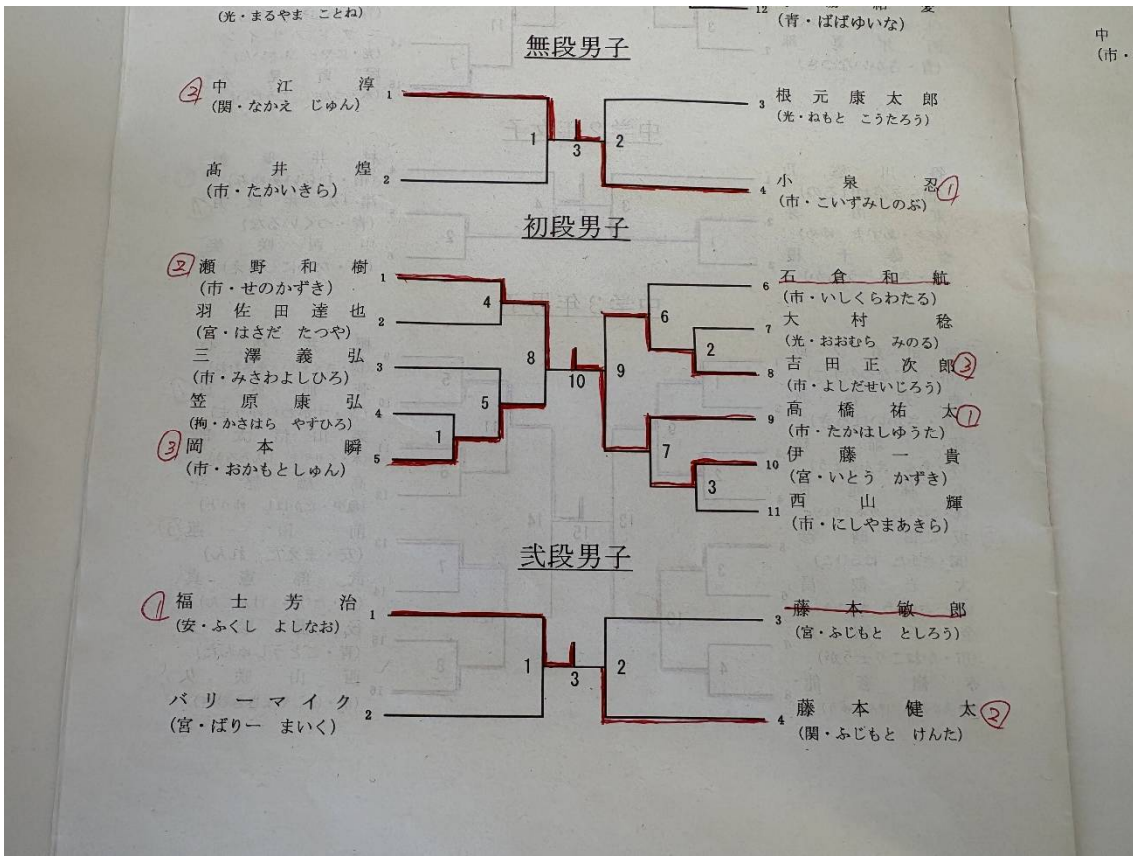 (光・まるやま ことね)
12
(青・ばばゆいな)
中
(市・
無段男子
② 中江淳 1
(関・なかえ じゅん)
髙井煌 2
(市・たかいきら)
1
3
2
3 根元康太郎
(光・ねもと こうたろう)
4 小泉忍 ①
(市・こいずみしのぶ)
初段男子
② 瀬野和樹 1
(市・せのかずき)
羽佐田達也 2
(宮・はさだ たつや)
三澤義弘 3
(市・みさわよしひろ)
笠原康弘 4
(拘・かさはら やすひろ)
③ 岡本瞬 5
(市・おかもとしゅん)
4
8
5
1
10
9
6
2
7
3
6 石倉和航
(市・いしくらわたる)
7 大村稔
(光・おおむら みのる)
8 吉田正次郎 ③
(市・よしだせいじろう)
9 高橋祐太 ①
(市・たかはしゆうた)
10 伊藤一貴
(宮・いとう かずき)
11 西山輝
(市・にしやまあきら)
弐段男子
① 福士芳治 1
(安・ふくし よしなお)
バリーマイク 2
(宮・ばりー まいく)
1
3
2
3 藤本敏郎
(宮・ふじもと としろう)
4 藤本健太 ②
(関・ふじもと けんた)